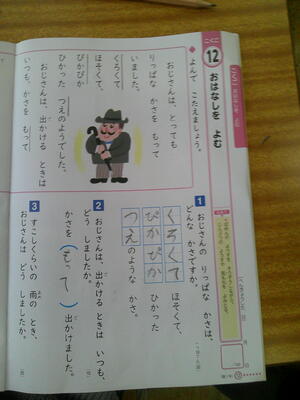 こくご
12
おはなしを よむ
◆よんで こたえましょう。
おじさんは、とっても
りっぱな かさを もって
いました。
くろくて
ほそくて、
ぴかぴか
ひかった つえのようでした。
おじさんは、出かける ときは
いつも、かさを もって
1 おじさんの りっぱな かさは、
どんな かさですか。
くろくて ほそくて、
ぴかぴか ひかった
つえのような かさ。
2 おじさんは、出かける とき いつも、
どう しましたか。
かさを（もって）出かけました。
3 すこしくらいの 雨の とき、
おじさんは どう しましたか。